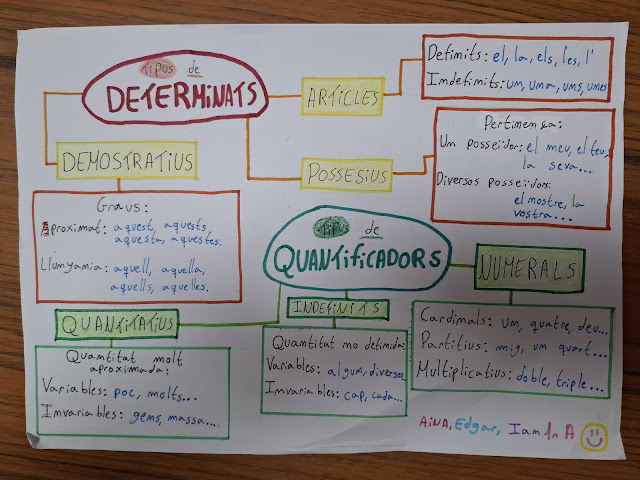 Tipus de
DETERMINATS
ARTICLES
Definits: el, la, els, les, l'
Indefinits: un, una, uns, unes
DEMOSTRATIUS
Graus:
Aproximat: aquest, aquests
aquesta, aquestes.
Llunyania: aquell, aquella,
aquells, aquelles.
POSSESIUS
Pertinença:
Un posseïdor: el meu, el teu,
la seva...
Diversos posseïdors:
el nostre, la
vostra...
Tipus de
QUANTIFICADORS
QUANTITATIUS
Quantitat molt
aproximada:
Variables: poc, molts...
Invariables: gens, massa....
INDEFINITS
Quantitat no definida:
Variables: algun, diversos,
Invariables: cap, cada...
NUMERALS
Cardinals: un, quatre, deu...
Partitius: mig, un quart...
Multiplicatius: doble, triple...
AiNA, Edgar, Ian 1r A